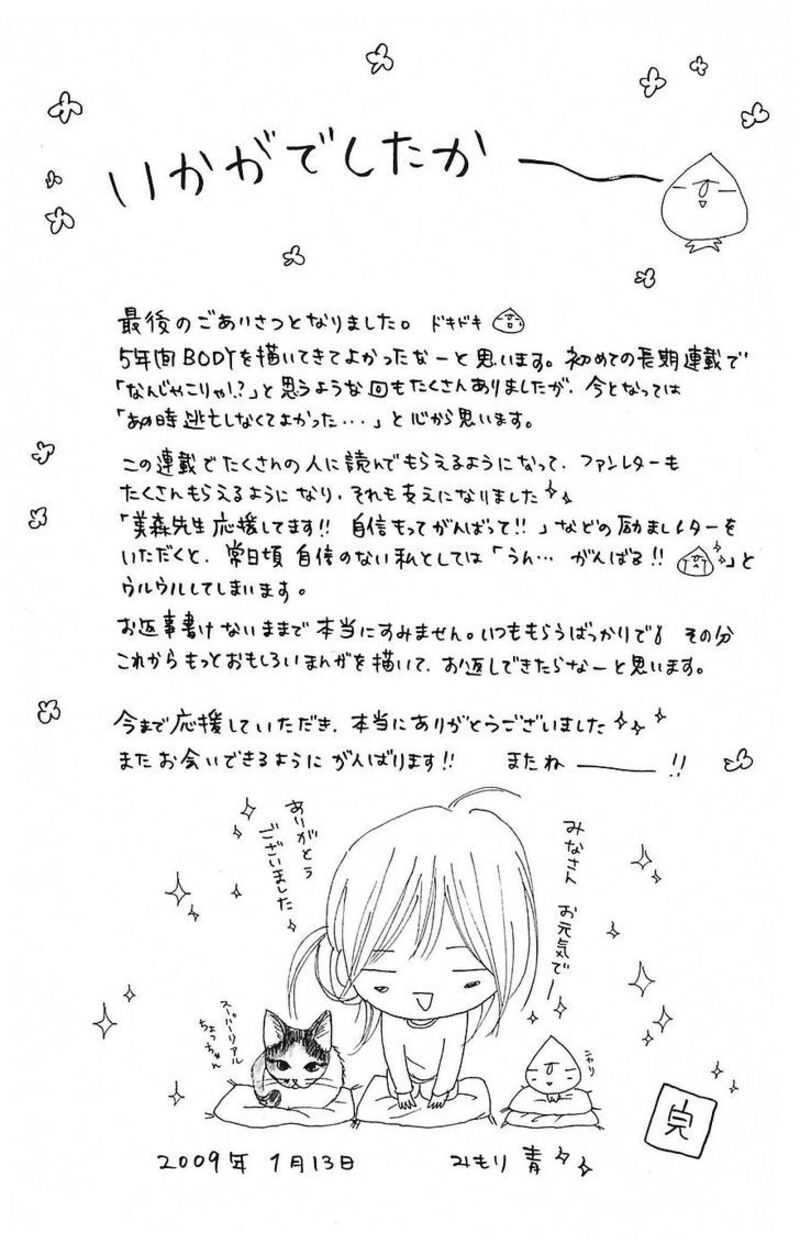 いかがでしたか――
最後のごあいさつとなりました。 ドキドキ
5年間BODYを描いてきてよかったなーと思います。初めての長期連載で
「なんじゃこりゃ!?」と思うような回もたくさんありましたが、今となっては
「あの時逃亡しなくてよかった・・・」と心から思います。
この連載でたくさんの人に読んでもらえるようになって、ファンレターも
たくさんもらえるようになり、それも支えになりました
「美森先生応援してます!! 自信もってがんばって!!」などの励ましレターを
いただくと、常日頃自信のない私としては「うん… がんばる!! 」と
ウルウルしてしまいます。
お返事書けないままで本当にすみません。いつももらうばっかりで その分
これからもっとおもしろいまんがを描いて、お返しできたらなーと思います。
今まで応援していただき、本当にありがとうございました
またお会いできるようにがんばります!! またね――!!
みなさん お元気でー
ありがとう
ございました
スーパーリアル
ちょっちゃん
ニヤリ
完
2009年 1月13日 みもり 青